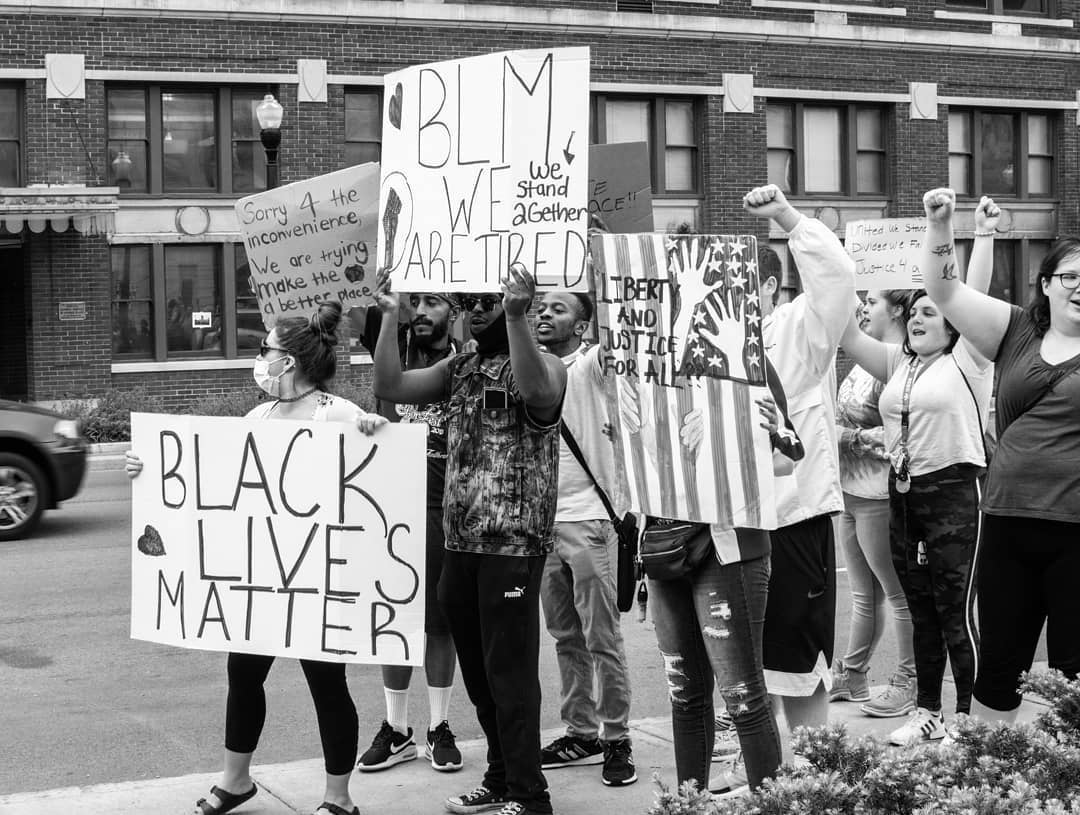 Sorry 4 the
inconvenience,
We are trying
make the
a better place
BLM
WE
ARE TIRED
We
Stand
2Gether
PLACE"
LIBERTY
AND
JUSTICE
FOR ALL
United We Stand
Divided We
Justice 4
BLACK
LIVES
MATTER
PUMA